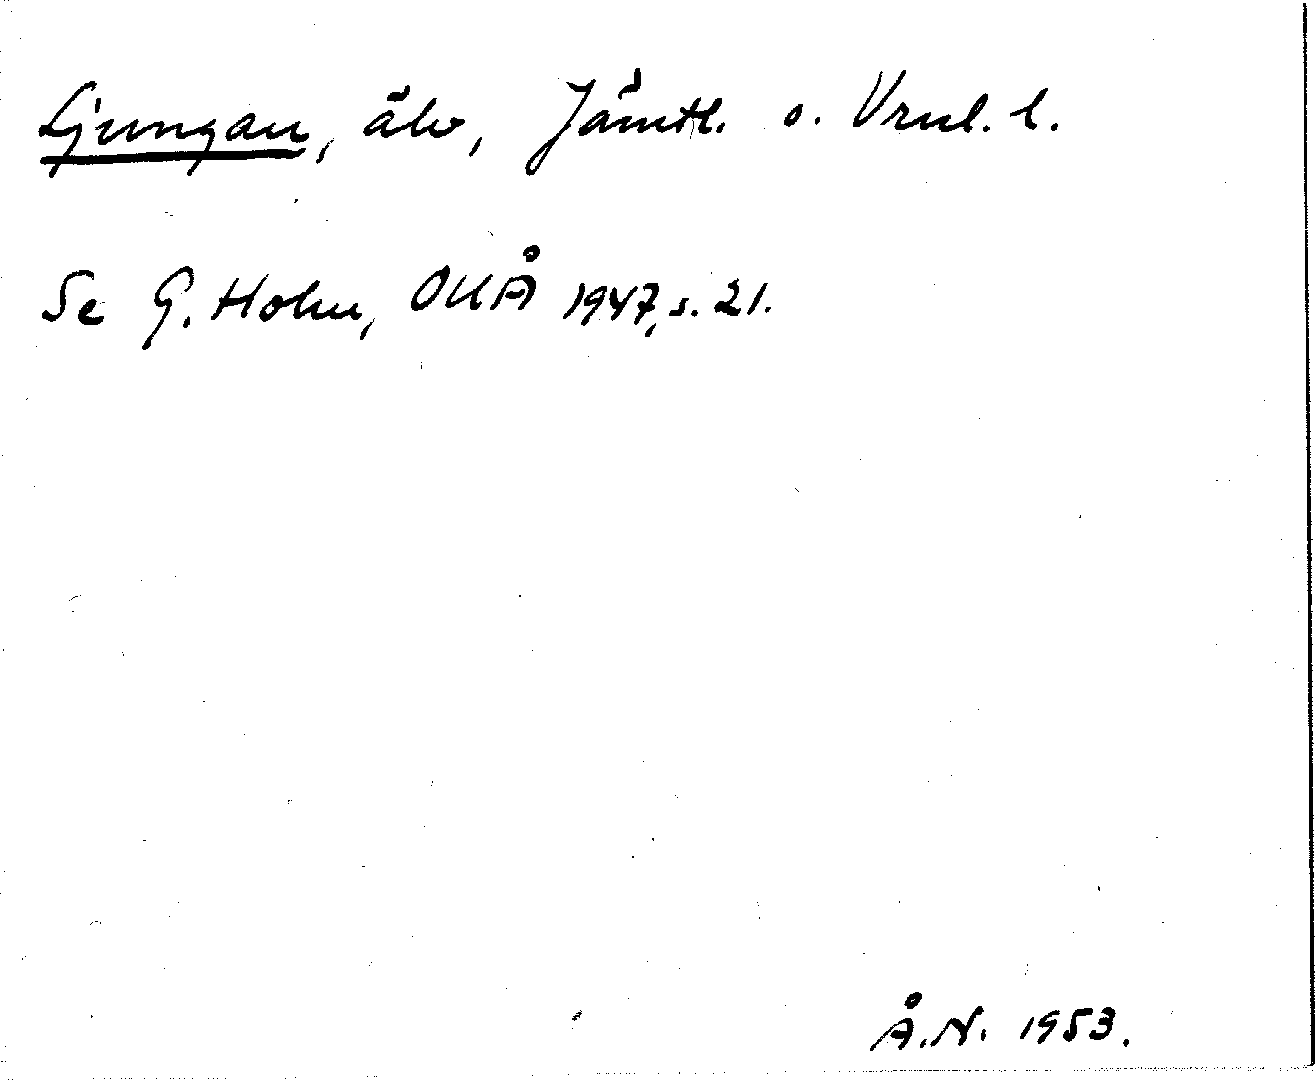 Ljungan, älv, Jämtl. o. Vrnl. l.
Se G. Holm, OUÅ 1947, s. 21.
Å.N. 1953.